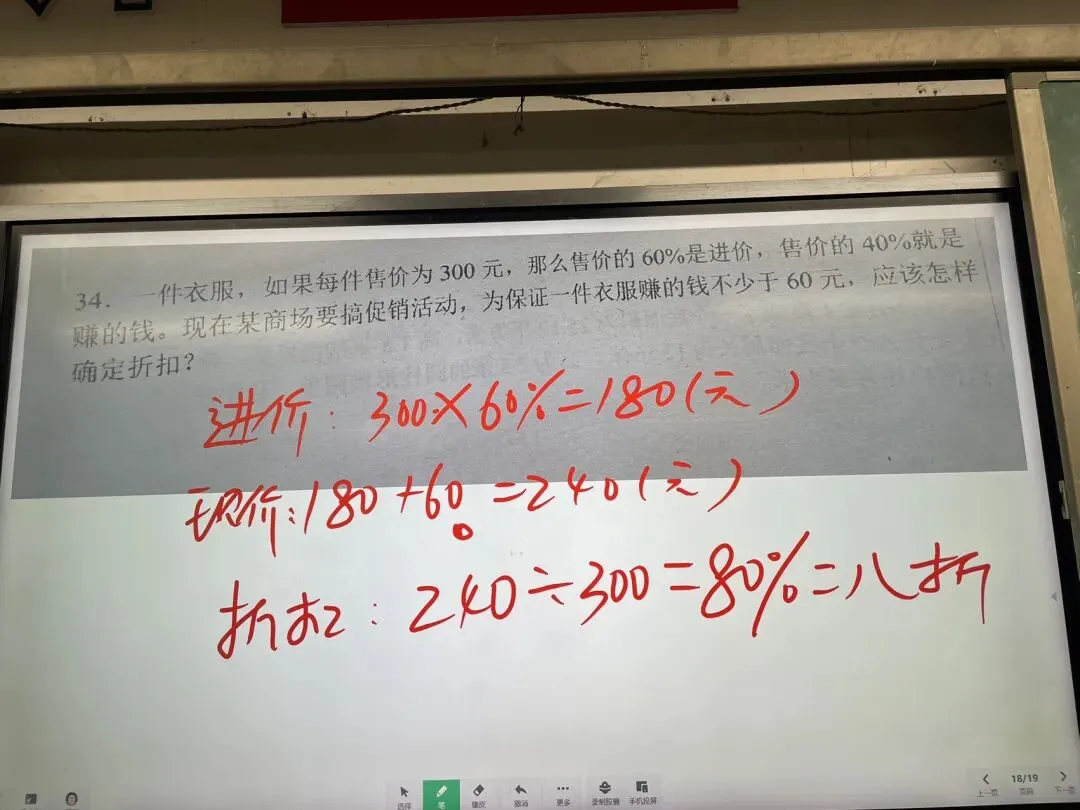 34. 一件衣服，如果每件售价为 300 元，那么售价的 60%是进价，售价的 40%就是
赚的钱。现在某商场要搞促销活动，为保证一件衣服赚的钱不少于 60 元，应该怎样
确定折扣？
进价：300×60%=180(元)
现价：180+60=240(元)
折扣：240÷300=80%=八折
选择
笔
橡皮
撤消
更多
录制胶囊
手机投屏
上一页
18/19
页码
下一页